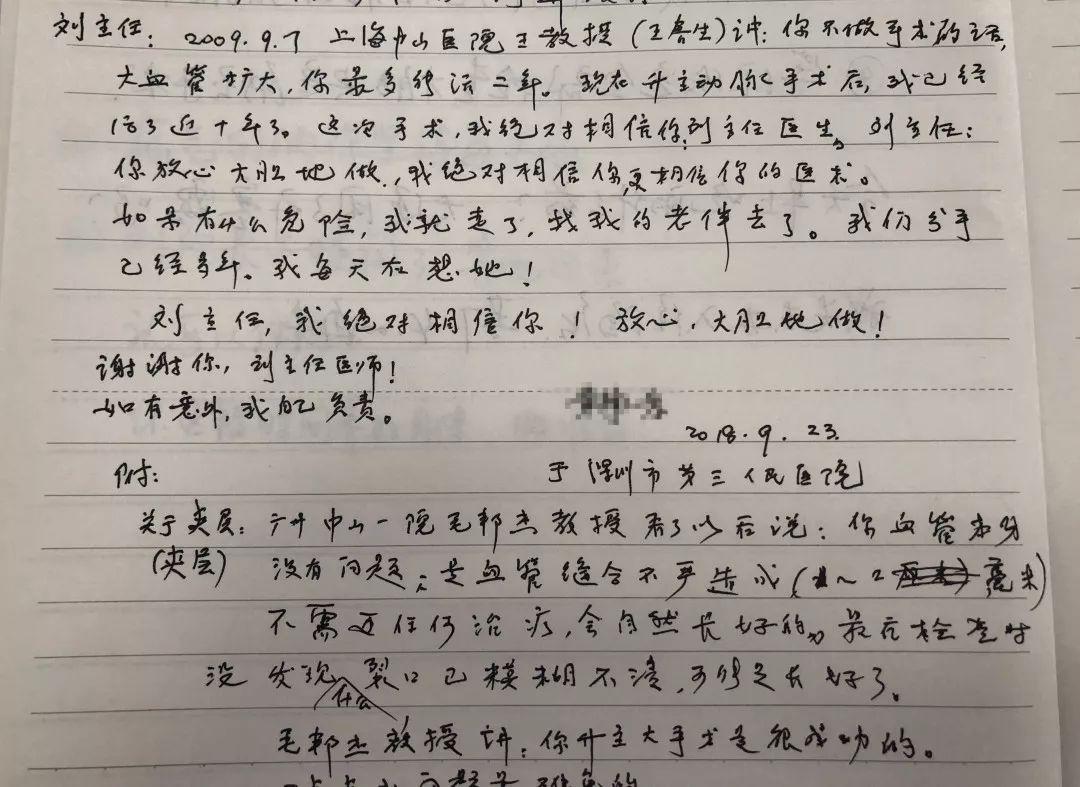 刘主任：2009.9.7 上海中山医院王教授（王春生）讲：你不做手术的话，
大血管扩大，你最多能活二年。现在升主动脉手术后，我已经
活了近十年了。这次手术，我绝对相信你刘主任医生。刘主任：
你放心大胆地做，我绝对相信你，更相信你的医术。
如果有什么危险，我就走了，找我的老伴去了。我们分手
已经多年。我每天在想她！
刘主任，我绝对相信你！放心，大胆地做！
谢谢你，刘主任医师！
如有意外，我自己负责。
2018.9.23.
附：
于深圳市第三人民医院
关于夹层：广州中山一院毛郝杰教授看了以后说：你血管本身
（夹层）没有问题；是血管缝合不严造成（1～2毫米）
不需要任何治疗，会自然长好的。最后检查时
没发现什么裂口已模糊不清，可能是长好了。
教授讲：你升主大手术是很成功的。